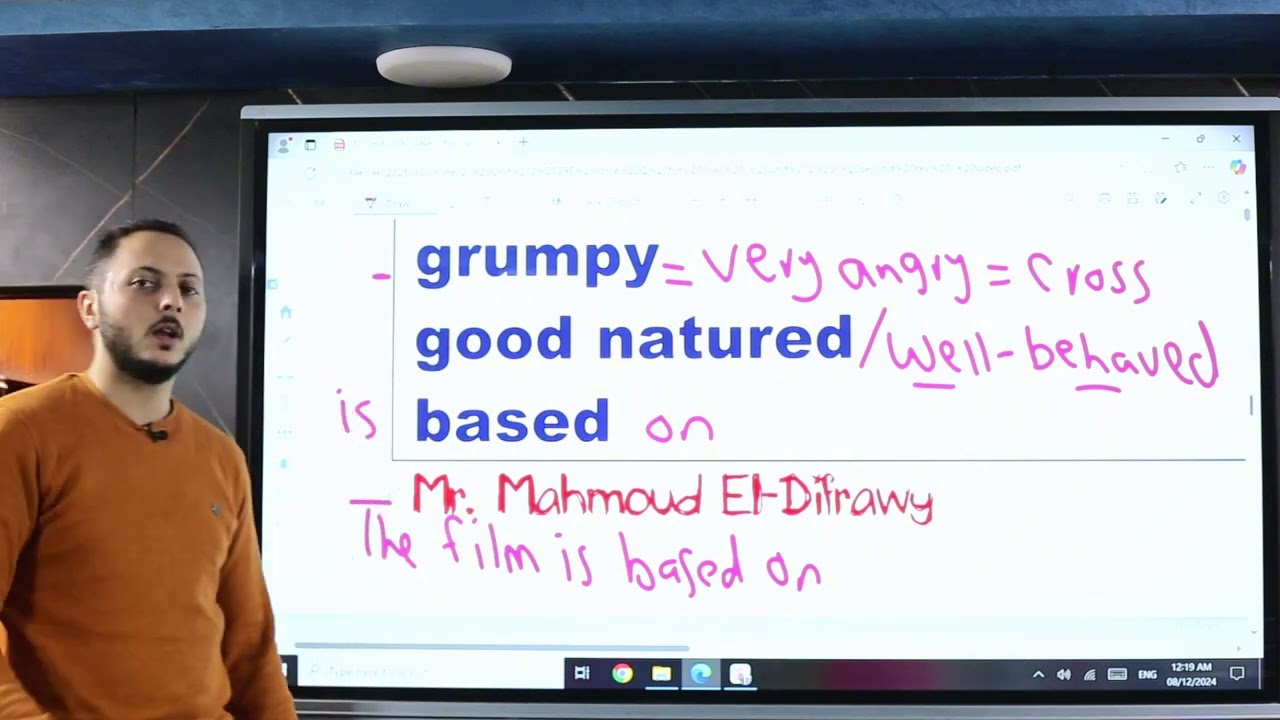 Draw
- grumpy = very angry = cross
good natured / well-behaved
is based on
Mr. Mahmoud El-Difrawy
The film is based on
Type here to
ENG
12:19 AM
08/12/2024